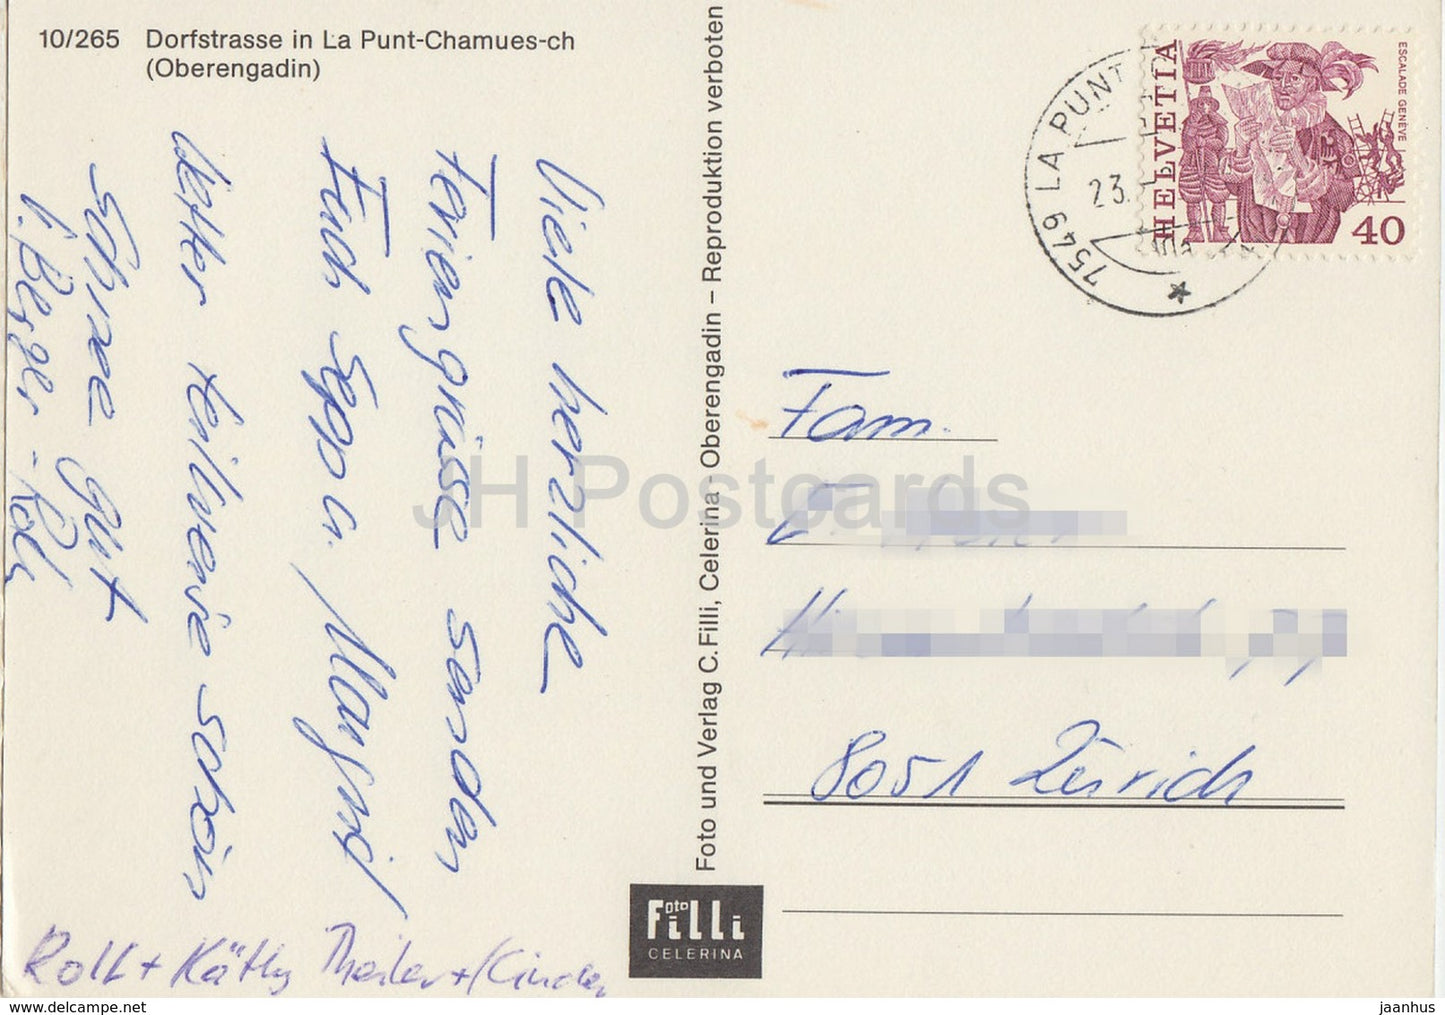 10/265 Dorfstrasse in La Punt-Chamues-ch
(Oberengadin)
Viele herzliche
Feriengrüsse senden
Euch Sepp u.
Wetter teilweise schön
Schnee gut
Rolf + Käthy Theiler + Kinder
Foto und Verlag C. Filli, Celerina - Oberengadin – Reproduktion verboten
Foto
Filli
CELERINA
7549 LA PUNT
23.
HELVETIA
ESCALADE GENÈVE
40
Fam.
8051 Zürich
JH Postcards
www.delcampe.net
jaanhus